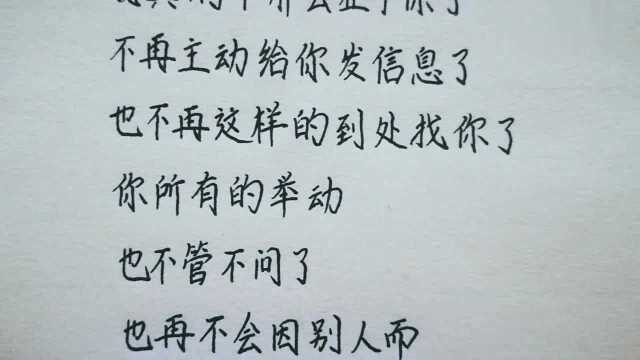 不再主动给你发信息了
也不再这样的到处找你了
你所有的举动
也不管不问了
也再不会因别人而